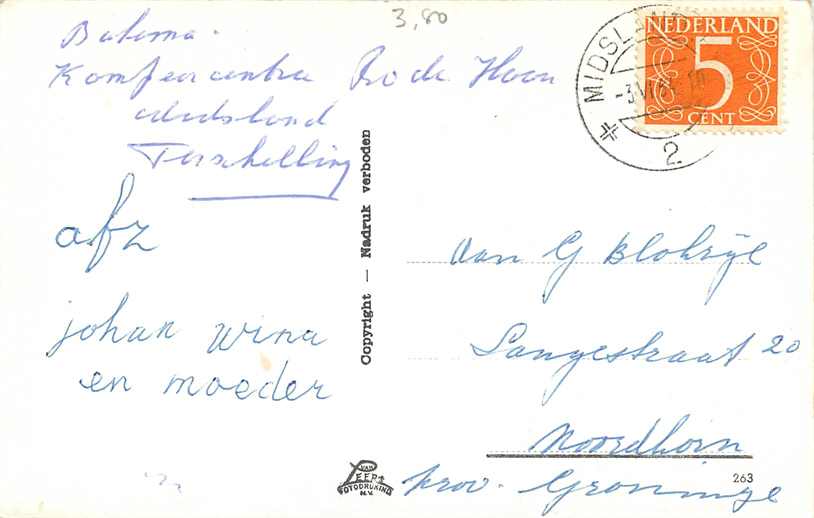 3,80
Batema.
Kampeercentra Rode Hoen
Midsland
Terschelling
afz
johan wina
en moeder
Copyright — Nadruk verboden
MIDSLAND
-3 VI
2
NEDERLAND
5
CENT
van G Blokzijl
Langestraat 20
Noordhorn
prov. Groninge
263
VAN
LEER'S
FOTODRUKIND
N.V.